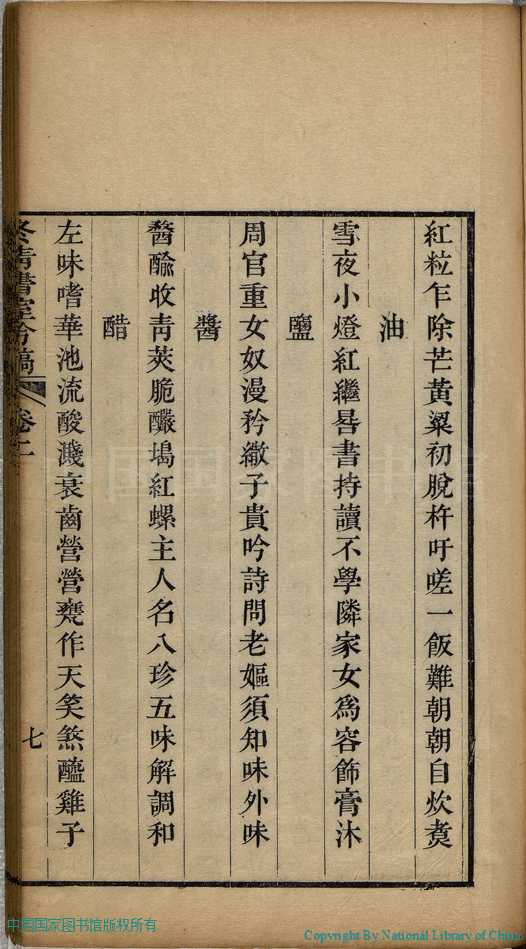 紅粒乍除芒黃粱初脫杵吁嗟一飯難朝朝自炊煑
油
雪夜小燈紅繼晷書持讀不學隣家女爲容飾膏沐
鹽
周官重女奴漫矜繖子貴吟詩問老嫗須知味外味
醬
醔醶收靑莢脆釅塲紅螺主人名八珍五味解調和
醋
左味嗜華池流酸濺衰齒營營甕作天笑煞醯雞子
書室吟稿
卷二
七
中国国家图书馆版权所有
Copyright By National Library of China